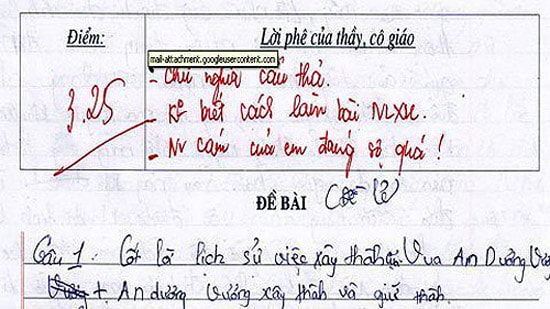 Điểm:
Lời phê của thầy, cô giáo
mail-attachment.googleusercontent.com
3,25
- Chữ nghĩa cẩu thả.
- Ko biết cách làm bài NLXH.
- N cảm của em đáng sợ quá!
ĐỀ BÀI
Câu 1. Cốt lõi lịch sử việc xây thành Vua An Dương
+ An dương vương xây thành và giữ thành.